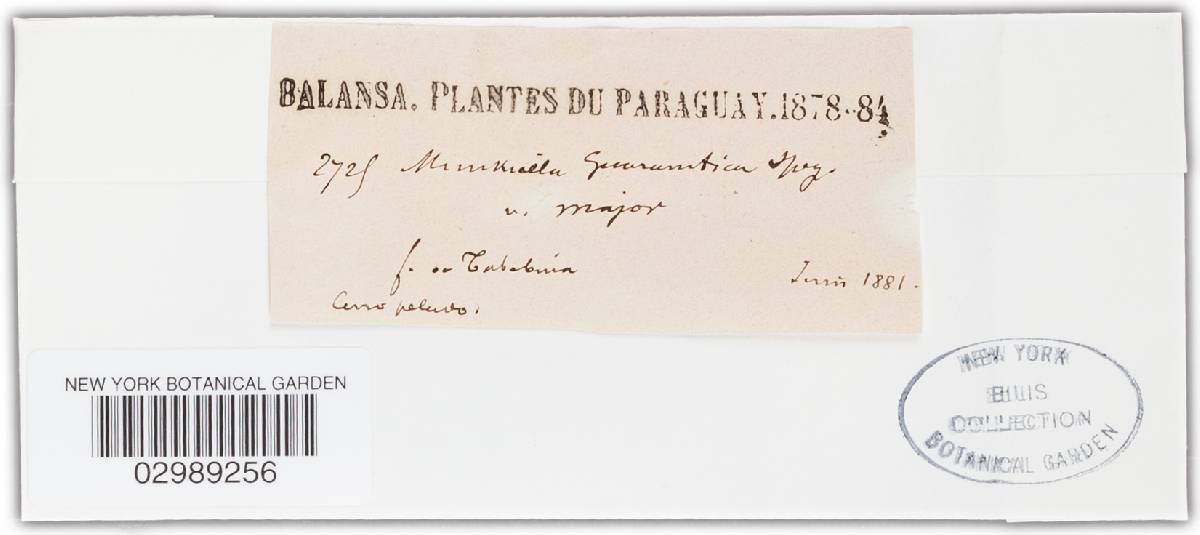 BALANSA. PLANTES DU PARAGUAY. 1878-84
2725 Munkiella Guaranitica Speg.
v. major
f. de
Cerro pelado.
Juin 1881.
NEW YORK BOTANICAL GARDEN
02989256
NEW YORK
ELLIS
COLLECTION
BOTANICAL GARDEN